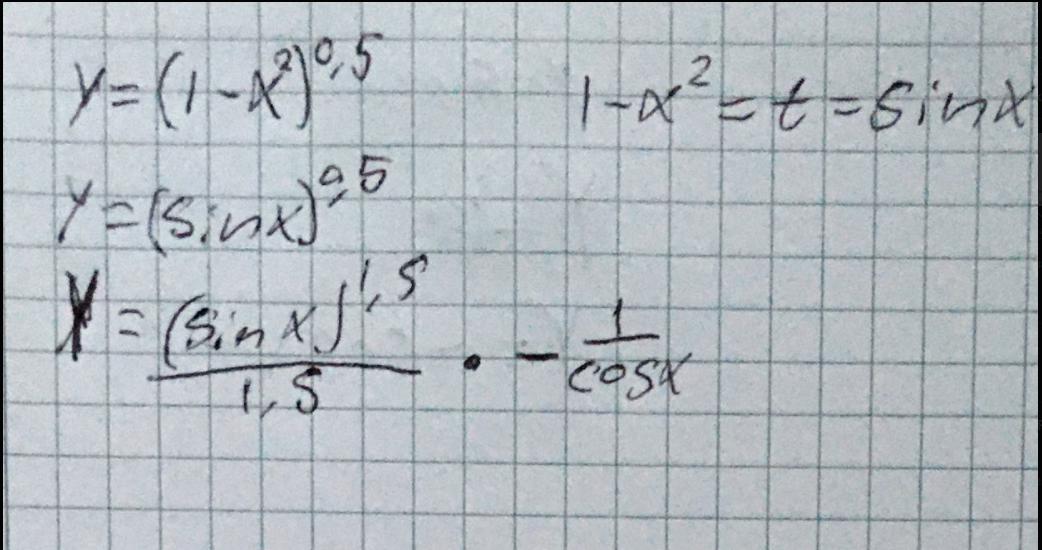 y = (1 - x²)^0,5
1 - x² = t = sin x
y = (sin x)^0,5
y = (sin x)^1,5 / 1,5 · - 1 / cos x